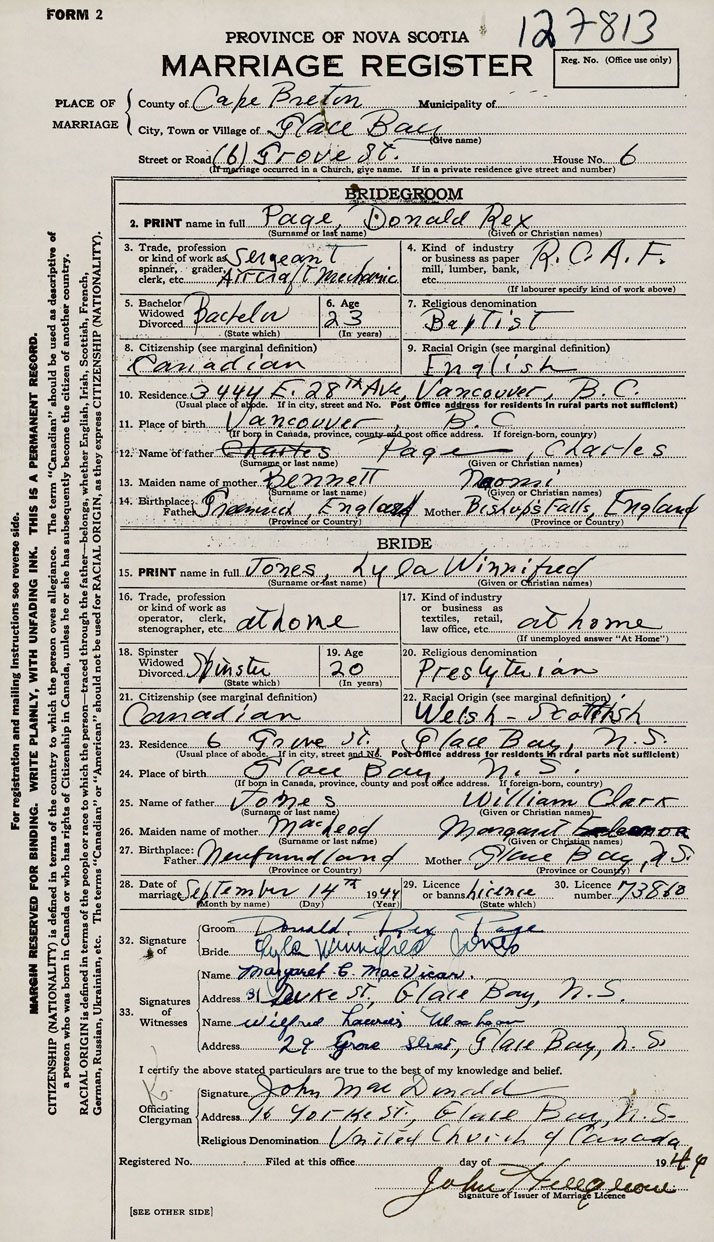 FORM 2
127813
PROVINCE OF NOVA SCOTIA
MARRIAGE REGISTER
Reg. No. (Office use only)
PLACE OF MARRIAGE
County of Cape Breton Municipality of
City, Town or Village of Glace Bay
(Give name)
Street or Road (6) Grove St. House No. 6
(If marriage occurred in a Church, give name. If in a private residence give street and number)
BRIDEGROOM
2. PRINT name in full Page, Donald Rex
(Surname or last name) (Given or Christian names)
3. Trade, profession or kind of work as spinner, grader, clerk, etc. Sergeant Aircraft Mechanic
4. Kind of industry or business as paper mill, lumber, bank, etc. R.C.A.F.
(If labourer specify kind of work above)
5. Bachelor Widowed Divorced Bachelor
(State which)
6. Age 23
(In years)
7. Religious denomination Baptist
8. Citizenship (see marginal definition) Canadian
9. Racial Origin (see marginal definition) English
10. Residence 3444 E. 28TH Ave, Vancouver, B.C.
(Usual place of abode. If in city, street and No. Post Office address for residents in rural parts not sufficient)
11. Place of birth Vancouver, B.C
(If born in Canada, province, county and post office address. If foreign-born, country)
12. Name of father Charles Page, Charles
(Surname or last name) (Given or Christian names)
13. Maiden name of mother Bennett Naomi
(Surname or last name) (Given or Christian names)
14. Birthplace: Father England Mother Bishops Falls, England
(Province or Country) (Province or Country)
BRIDE
15. PRINT name in full Jones, Lyla Winnifred
(Surname or last name) (Given or Christian names)
16. Trade, profession or kind of work as operator, clerk, stenographer, etc. at home
17. Kind of industry or business as textiles, retail, law office, etc. at home
(If unemployed answer "At Home")
18. Spinster Widowed Divorced Spinster
(State which)
19. Age 20
(In years)
20. Religious denomination Presbyterian
21. Citizenship (see marginal definition) Canadian
22. Racial Origin (see marginal definition) Welsh - Scottish
23. Residence 6 Grove St. Glace Bay, N.S.
(Usual place of abode. If in city, street and No. Post Office address for residents in rural parts not sufficient)
24. Place of birth Glace Bay, N.S.
(If born in Canada, province, county and post office address. If foreign-born, country)
25. Name of father Jones William Clark
(Surname or last name) (Given or Christian names)
26. Maiden name of mother MacLeod Margaret
(Surname or last name) (Given or Christian names)
27. Birthplace: Father Newfoundland Mother Glace Bay, N.S.
(Province or Country) (Province or Country)
28. Date of marriage September 14th 1944
(Month by name) (Day) (Year)
29. Licence or banns licence
(State which)
30. Licence number 73860
32. Signature of
Groom Donald Rex Page
Bride Lyla Winnifred Jones
33. Signatures of Witnesses
Name Margaret C. MacVicar.
Address 31 Duke St, Glace Bay, N.S.
Name Wilfred
Address 29 Grove Street, Glace Bay, N.S.
I certify the above stated particulars are true to the best of my knowledge and belief.
Officiating Clergyman
Signature John MacDonald
Address 16 Yorke St, Glace Bay, N.S.
Religious Denomination United Church of Canada
Registered No. Filed at this office day of 1944
John
Signature of Issuer of Marriage Licence
[SEE OTHER SIDE]
For registration and mailing instructions see reverse side.
MARGIN RESERVED FOR BINDING. WRITE PLAINLY, WITH UNFADING INK. THIS IS A PERMANENT RECORD.
CITIZENSHIP (NATIONALITY) is defined in terms of the country to which the person owes allegiance. The term "Canadian" should be used as descriptive of
a person who was born in Canada or who has rights of Citizenship in Canada, unless he or she has subsequently become the citizen of another country.
RACIAL ORIGIN is defined in terms of the people or race to which the person—traced through the father—belongs, whether English, Irish, Scottish, French,
German, Russian, Ukrainian, etc. The terms "Canadian" or "American" should not be used for RACIAL ORIGIN, as they express CITIZENSHIP (NATIONALITY).